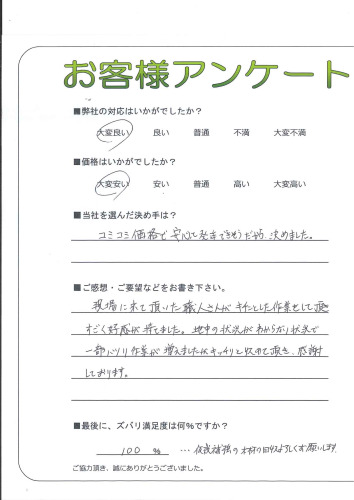 お客様アンケート
■弊社の対応はいかがでしたか？
大変良い 良い 普通 不満 大変不満
■価格はいかがでしたか？
大変安い 安い 普通 高い 大変高い
■当社を選んだ決め手は？
コミコミ価格で安心して発注できそうだから、決めました。
■ご感想・ご要望などをお書き下さい。
現場に来て頂いた職人さんがキチンとした作業をして頂き
すごく好感が持てました。地中の状況がわからない状況で
一部ハツリ作業が増えましたがキッチリと収めて頂き、感謝
しております。
■最後に、ズバリ満足度は何％ですか？
100 % … の件もよろしくお願いします
ご協力頂き、誠にありがとうございました。